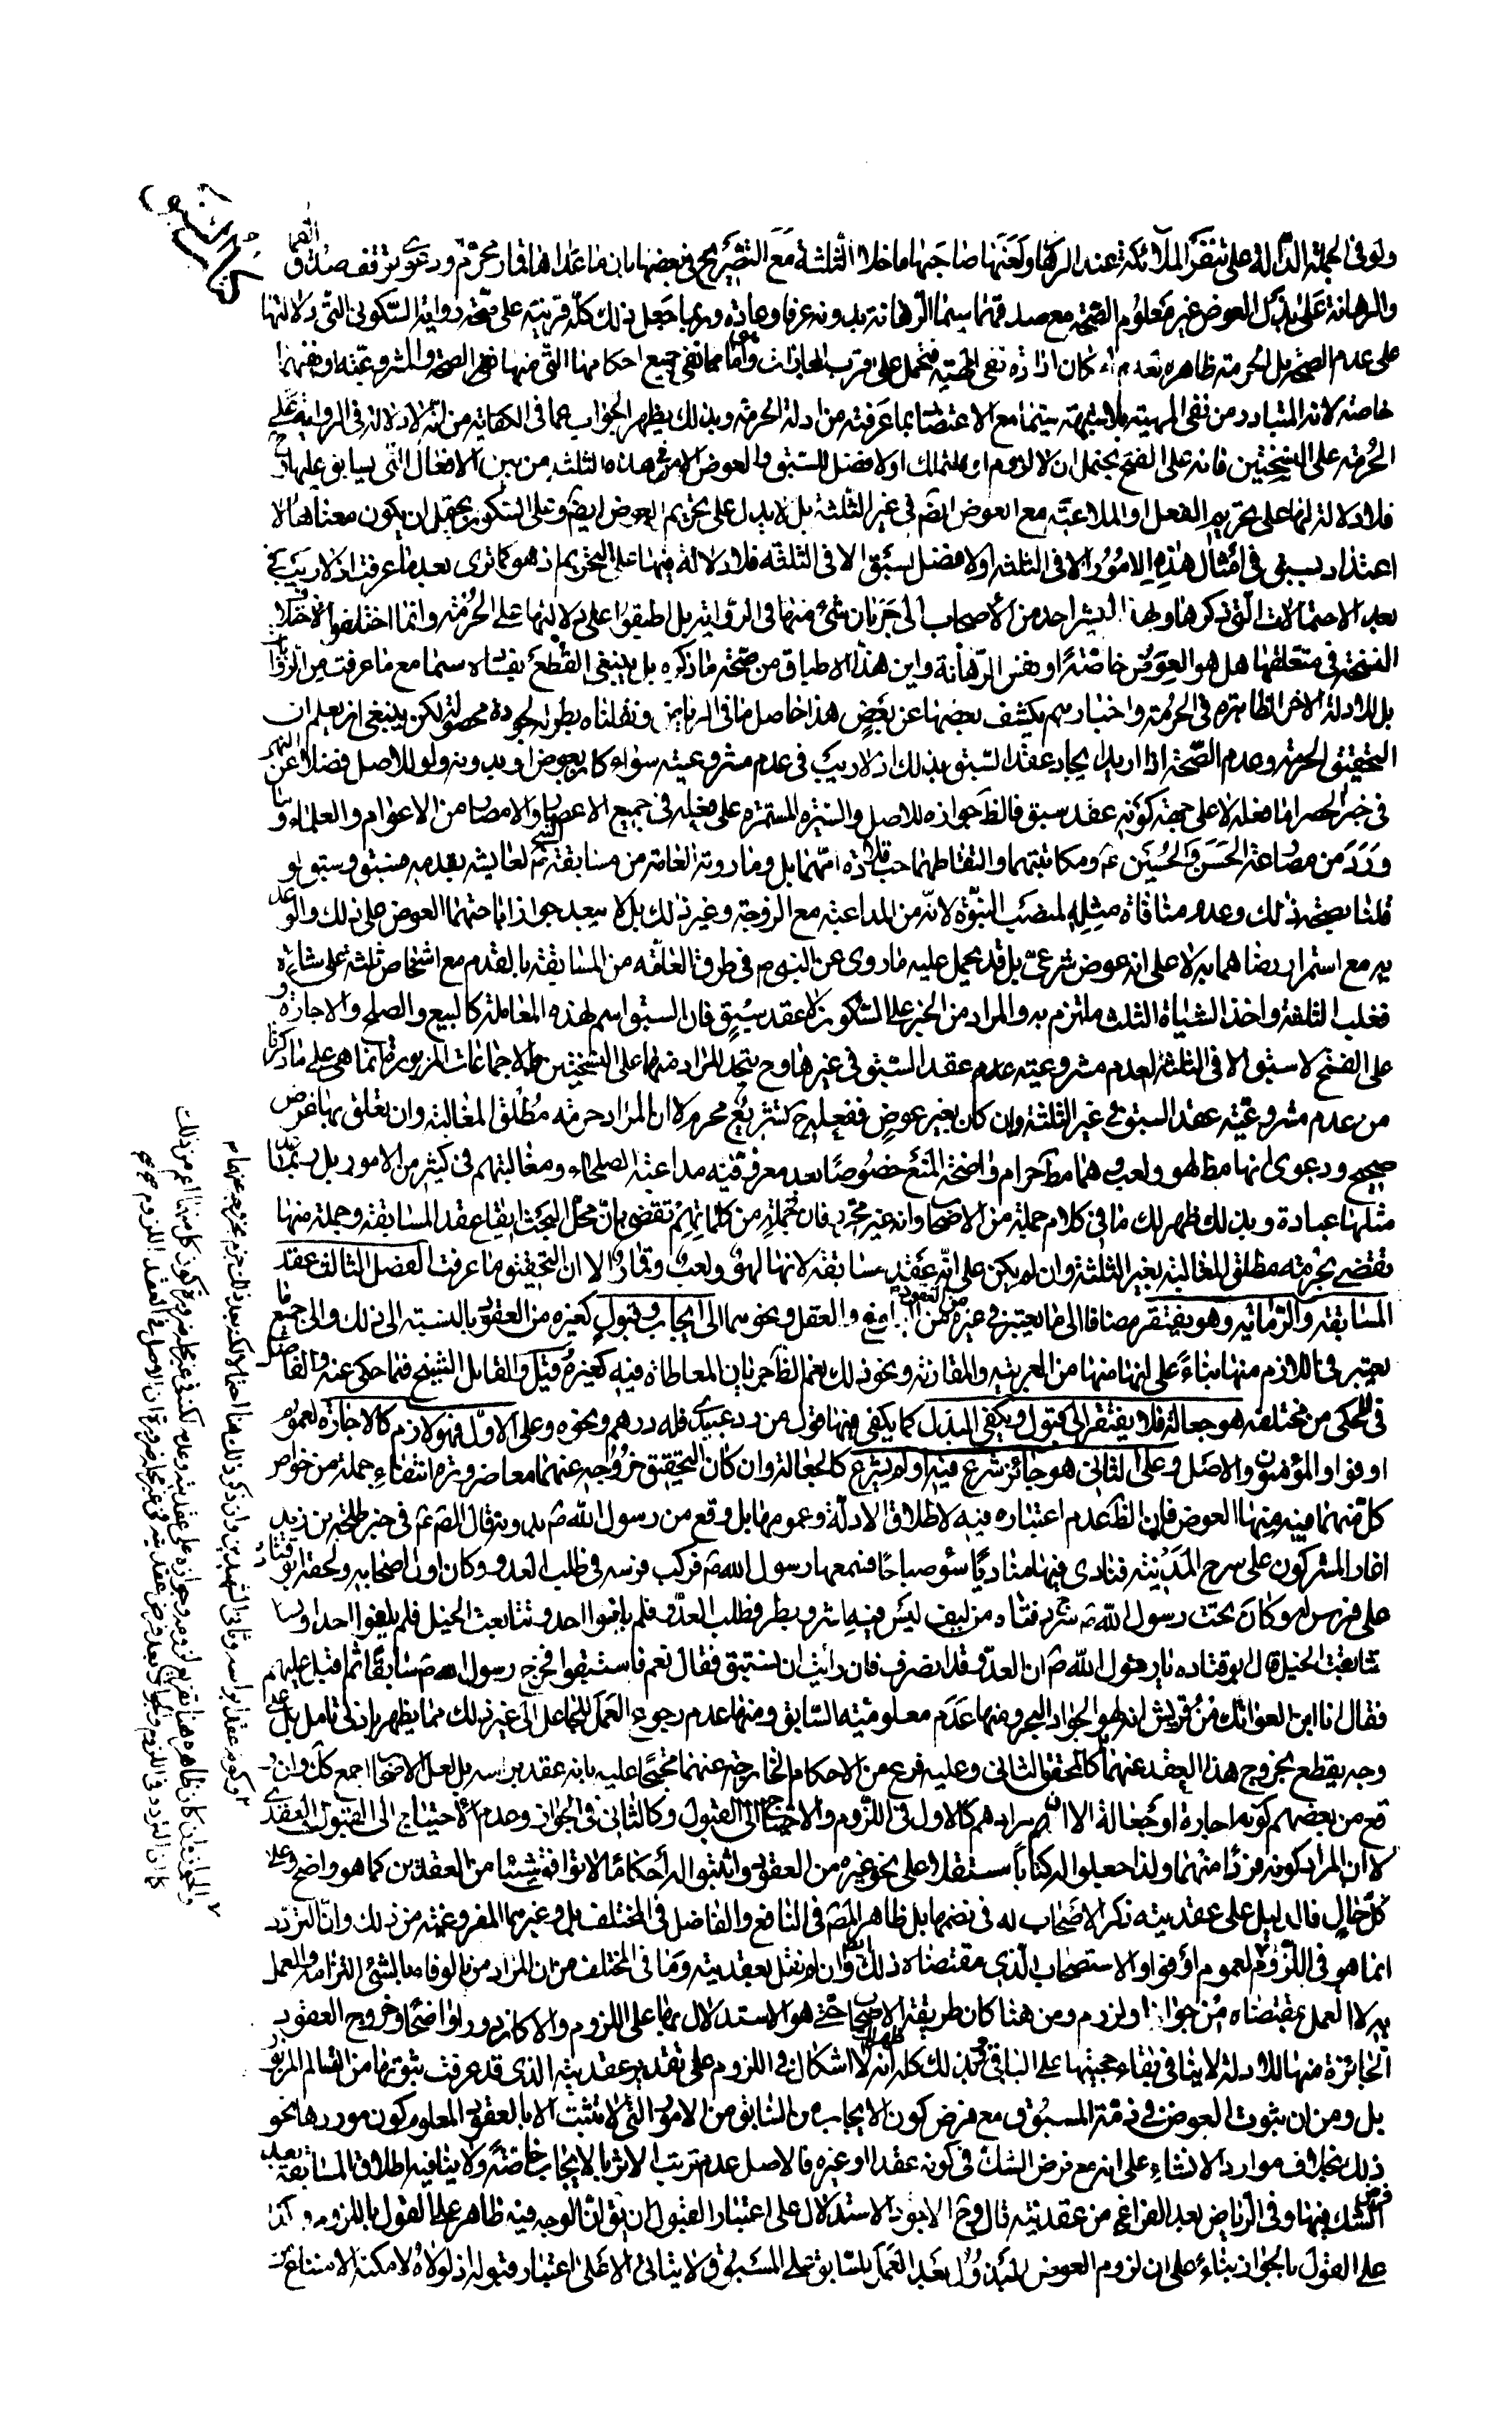 كتاب السبق
ولو في الجملة الدالة على تنفر الملائكة عند الرهان ولعنها صاحبها ما خلا الثلثة مع التصريح في بعضها بان ما عداها قمار محرم ودعوى توقف صدق القمار
والرهانة على بذل العوض غير معلوم الصحة مع صدقهما سيما الرهانة بدونه عرفا وعادة وربما جعل ذلك كله قرينة على صحة رواية السكوني التي دلالتها
على عدم الصحة بل الحرمة ظاهرة بعد كان ارادة نفي المهية فتحمل على اقرب المجازات وهو اما نفي جميع احكامها التي منها نفي الصحة والمشروعية او نفيهما
خاصة لانه المتبادر من نفي المهية بلا شبهة سيما مع الاعتضاد بما عرفته من ادلة الحرمة وبذلك يظهر الجواب عما في الكفاية من انه لا دلالة في الرواية على
الحرمة على النسختين فانه على الفتح يحتمل ان لا لزوم او لا تملك او لا فضل للسبق والعوض الا في هذه الثلثة من بين الافعال التي يسابق عليها
فلا دلالة لها على تحريم الفعل او الملاعبة مع العوض ايضا في غير الثلثة بل لا يدل على تحريم العوض ايضا وعلى السكون يحتمل ان يكون معناها لا
اعتداد بسبق في امثال هذه الامور الا في الثلثة او لا فضل لسبق الا في الثلثة فلا دلالة فيها على التحريم اذ هو كما ترى بعد ما عرفت اذ لا ريب في
بعد الاحتمالات التي ذكرها ولهذا لم يشر احد من الاصحاب الى جريان شئ منها في الرواية بل اطبقوا على دلالتها على الحرمة وانما اختلفوا لاختلاف
النسخة في متعلقها هل هو العوض خاصة او نفس الرهانة واين هذا الاطباق من صحة ما ذكره بل ينبغي القطع بفساده سيما مع ما عرفت من الروايات
بل الادلة الاخر الظاهرة في الحرمة واخبارهم يكشف بعضها عن بعض هذا حاصل ما في الرياض ونقلناه بطوله لجودة محصوله لكن ينبغي ان يعلم ان
التحقيق الحرمة وعدم الصحة اذا اريد ايجاد عقد السبق بذلك اذ لا ريب في عدم مشروعيته سواء كان بعوض او بدونه ولو للاصل فضلا عن النهي
في خبر الحصر اما فعله لا على جهة كونه عقد سبق فالظ جوازه للاصل والسيرة المستمرة على فعله في جميع الاعصار والامصار من الاعوام والعلماء وما
ورد من مصارعة الحسن والحسين ع ومكاتبتهما والتقاطهما حب قلادة امهما بل وما روته العامة من مسابقة النبي ص لعايشة بقدمه فسبق وسبق لو
قلنا بصحة ذلك وعدم منافاة مثله لمنصب النبوة لانه من المداعبة مع الزوجة وغير ذلك بل لا يبعد جواز اباحتهما العوض على ذلك والوعد
به مع استمرار رضاهما به لا على انه عوض شرعي بل قد يحمل عليه ما روي عن النبي ص في طرق العامة من المسابقة بالقدم مع اشخاص ثلثة على شاة
فغلب الثلثة واخذ الشياة الثلث ملتزم به والمراد من الخبر على السكون لا عقد سبق فان السبق اسم لهذه المعاملة كالبيع والصلح والاجارة و
على الفتح لا سبق الا في الثلثة لعدم مشروعية عقد السبق في غيرها وح يتحد المراد منها على النسختين والاجماعات المزبورة انما هي على ما ذكرنا
من عدم مشروعية عقد السبق في غير الثلثة وان كان بغير عوض ففعله ح كتشريع محرم لا ان المراد حرمة مطلق المغالبة وان تعلق بها غرض
صحيح ودعوى انها مط لهو ولعب وهما مط حرام واضحة المنع خصوصا بعد معرفة مداعبة الصلحاء ومغالبتهم في كثير من الامور بل ربما عد
مثلها عبادة وبذلك ظهر لك ما في كلام جملة من الاصحاب وانه غير محرر فان جملة من كلماتهم تقضي بان محل البحث ايقاع عقد المسابقة وجملة منها
تقضي بحرمة مطلق المغالبة بغير الثلثة وان لم يكن على انه عقد مسابقة لانها لهو ولعب وقمار الا ان التحقيق ما عرفت الفصل الثالث عقد
المسابقة والرماية وهو يفتقر مضافا الى ما يعتبر في غيره من العقود من البلوغ والعقل ونحوهما الى ايجاب وقبول كغيره من العقود بالنسبة الى ذلك والى جميع ما
يعتبر في اللازم منها بناء على انه منها من العربية والمقارنة ونحو ذلك نعم الظ جريان المعاطاة فيه كغيره قيل والقايل الشيخ فيما حكي عنه والفاضل
في المحكي من مختلفه هو جعالة فلا يفتقر الى قبول ويكفي البذل كما يكفي فيها قول من رد عبدي فله درهم ونحوه وعلى الاول فهو لازم كالاجارة لعموم
اوفوا والمؤمنون والاصل وعلى الثاني هو جائز شرع فيه او لم يشرع كالجعالة وان كان التحقيق خروجه عنهما معا ضرورة انتفاء جملة من خواص
كل منهما فيه منها العوض فان الظ عدم اعتباره فيه لاطلاق الادلة وعمومها بل وقع من رسول الله ص بدونه قال الص ع في خبر طلحة بن زيد
اغار المشركون على سرح المدينة فنادى فيها مناد يا سوء صباحاه فسمعها رسول الله ص فركب فرسه في طلب العدو وكان اول اصحابه ولحقه ابو قتادة
على فرس له وكان تحت رسول الله ص سرج دفتاه من ليف ليس فيه اشر ولا بطر فطلب العدو فلم يلقوا احدا وتتابعت الخيل فلم يلقوا احدا ولما
تتابعت الخيل قال ابو قتادة يا رسول الله ص ان العدو قد انصرف فان رايت ان نستبق فقال نعم فاستبقوا فخرج رسول الله ص سابقا ثم اقبل عليهم
فقال انا ابن العواتك من قريش انه لهو الجواد البحر ومنها عدم معلومية السابق ومنها عدم رجوع العمل للجاعل الى غير ذلك مما يظهر بادنى تامل بل على
وجه يقطع بخروج هذا العقد عنهما كالمحقق الثاني وعليه فرع من الاحكام الخارجة عنهما محتجا عليه بانه عقد براسه بل لعل الاصحاب اجمع كل وان
وقع من بعضهم كونه اجارة او جعالة الا ان مرادهم كالاول في اللزوم والاحتياج الى القبول وكالثاني في الجواز وعدم الاحتياج الى القبول العقدي
لا ان المراد كونه فردا منهما ولذا جعلوا له كتابا مستقلا على نحو غيره من العقود واثبتوا له احكاما لا توافق شيئا من العقدين كما هو واضح وعلى
كل حال فالدليل على عقديته ذكر الاصحاب له في نضمها بل ظاهر المص في النافع والفاضل في المختلف بل وغيرهما المفروغية من ذلك وان التردد
انما هو في اللزوم لعموم اوفوا والاستصحاب الذي مقتضاه ذلك ايضا وان لم نقل بعقديته وما في المختلف من ان المراد من الوفاء بالشئ التزامه والعمل
به لا العمل بمقتضاه من جواز او لزوم ومن هنا كان طريقة الاصحاب حتى هو الاستدلال بها على اللزوم والا كان دورا واضحا وخروج العقود
الجائزة منها للادلة لا ينافي بقاء حجيتها على الباقي فمن ذلك كله ظهر لك انه لا اشكال في اللزوم على تقدير عقديته الذي قد عرفت ثبوتها من التسالم المزبور
بل ومن ان ثبوت العوض في ذمة المسبوق مع فرض كون الايجاب من السابق من الامور التي لا تثبت الا بالعقود المعلوم كون موردها نحو
ذلك بخلاف موارد الانشاء على انه مع فرض الشك في كونه عقدا او غيره فالاصل عدم ترتب الاثر بالايجاب خاصة ولا ينافيه اطلاق المسابقة بعد فرض
الشك فيها وفي الرياض بعد الفراغ من عقديته قال وح الاجود الاستدلال على اعتبار القبول ان يق ان الوجه فيه ظاهر على القول باللزوم وكذا
على القول بالجواز بناء على ان لزوم العوض المبذول بعد العمل للسابق على المسبوق لا يتاتى الا على اعتبار قبوله اذ لولاه لامكنه الامتناع